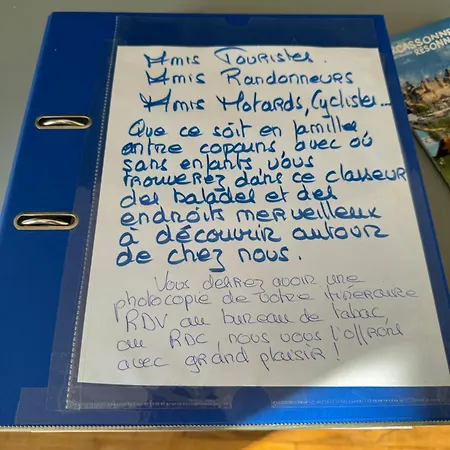 Amis Touristes.
Amis Randonneurs
Amis Motards, Cyclistes...
Que ce soit en famille,
entre copains, avec où
sans enfants vous
trouverez dans ce classeur
des balades et des
endroits merveilleux
à découvrir autour
de chez nous.
Vous désirez avoir une
photocopie de votre itinéraire
RDV au bureau de tabac,
au RDC, nous vous l'offrons
avec grand plaisir !
CARCASSONNE